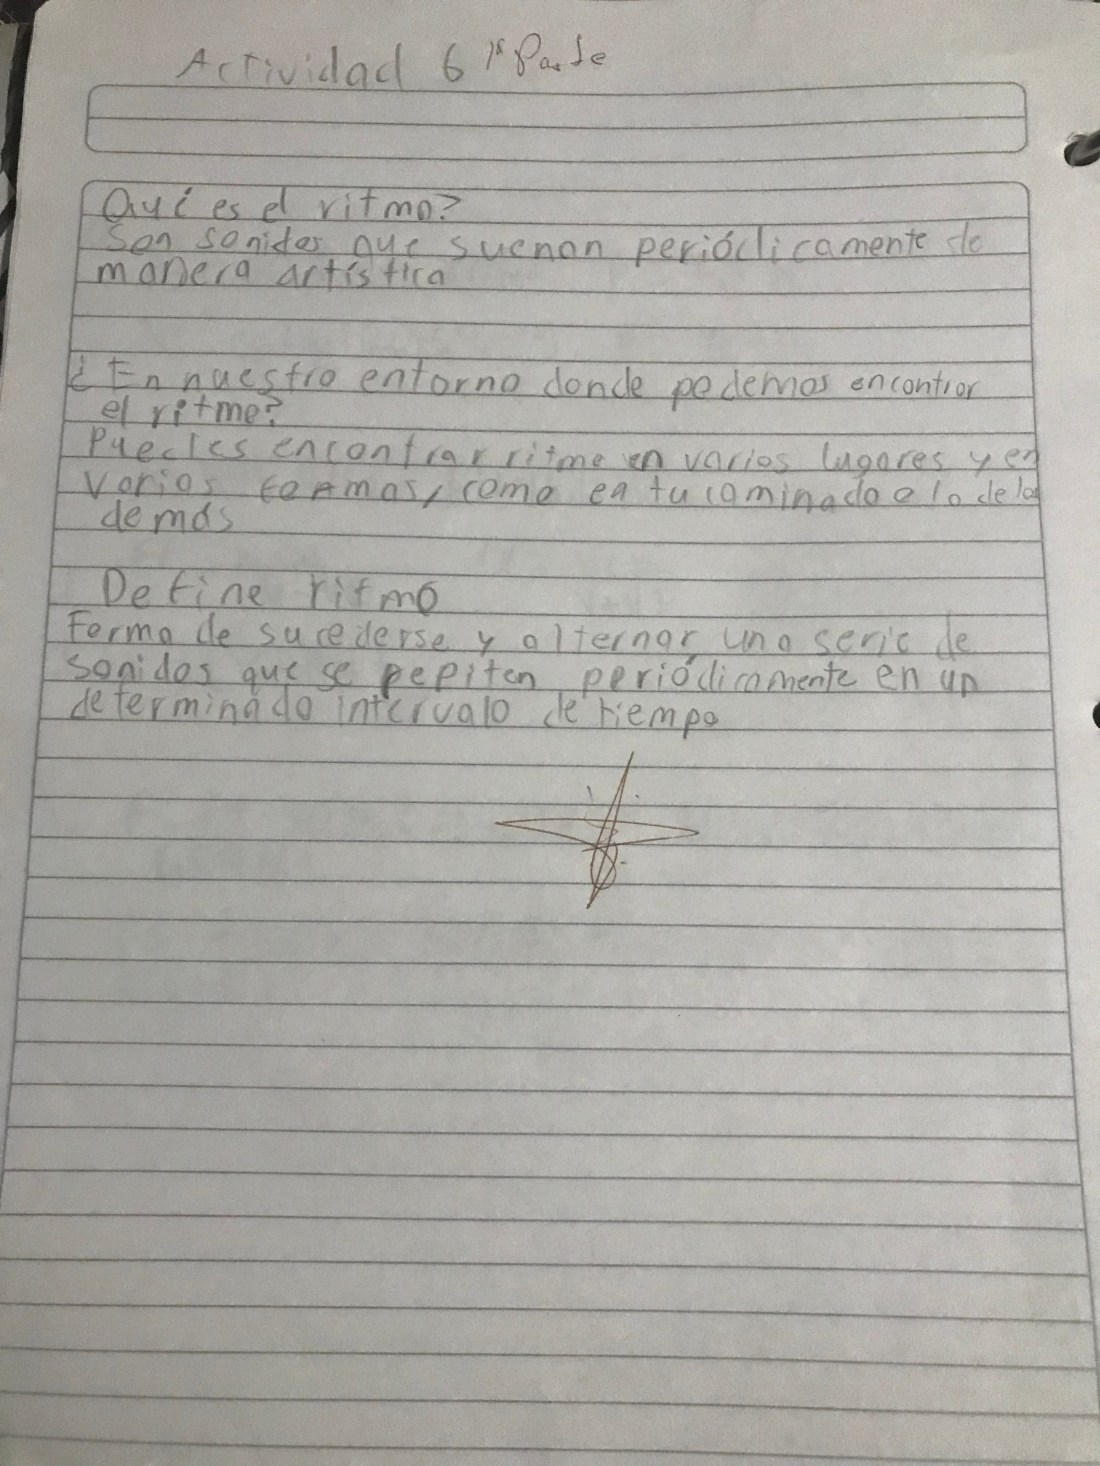 Actividad 6 1ª Parte
Qué es el ritmo?
Son sonidos que suenan periódicamente de
manera artística
¿En nuestro entorno donde podemos encontrar
el ritmo?
Puedes encontrar ritmo en varios lugares y en
varias formas, como en tu caminado o lo de los
demás
Define ritmo
Forma de sucederse y alternar una serie de
sonidos que se repiten periódicamente en un
determinado intervalo de tiempo